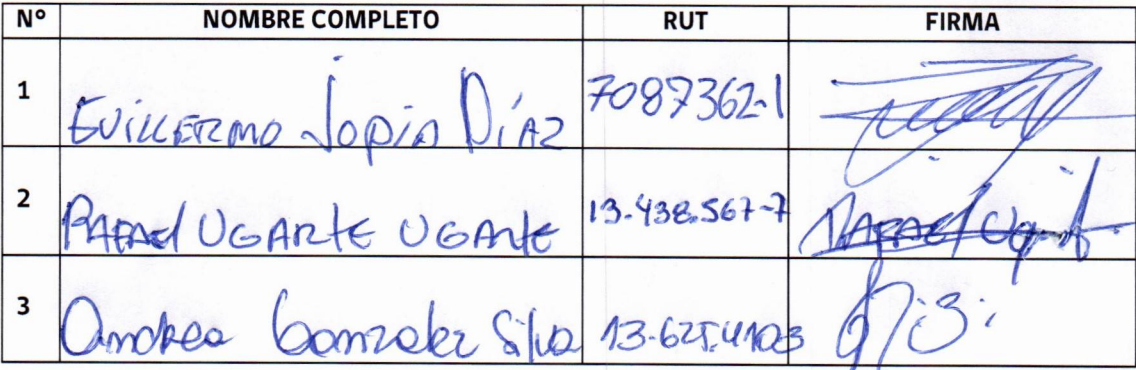 Nº NOMBRE COMPLETO RUT FIRMA
1 GUILLERMO Jopia DíAZ 7087362-1
2 RAFAEl UGARtE UGARtE 13.438.567-7 RAFAEl Ugarte
3 Andrea Gonzalez Silva 13.625.410-3